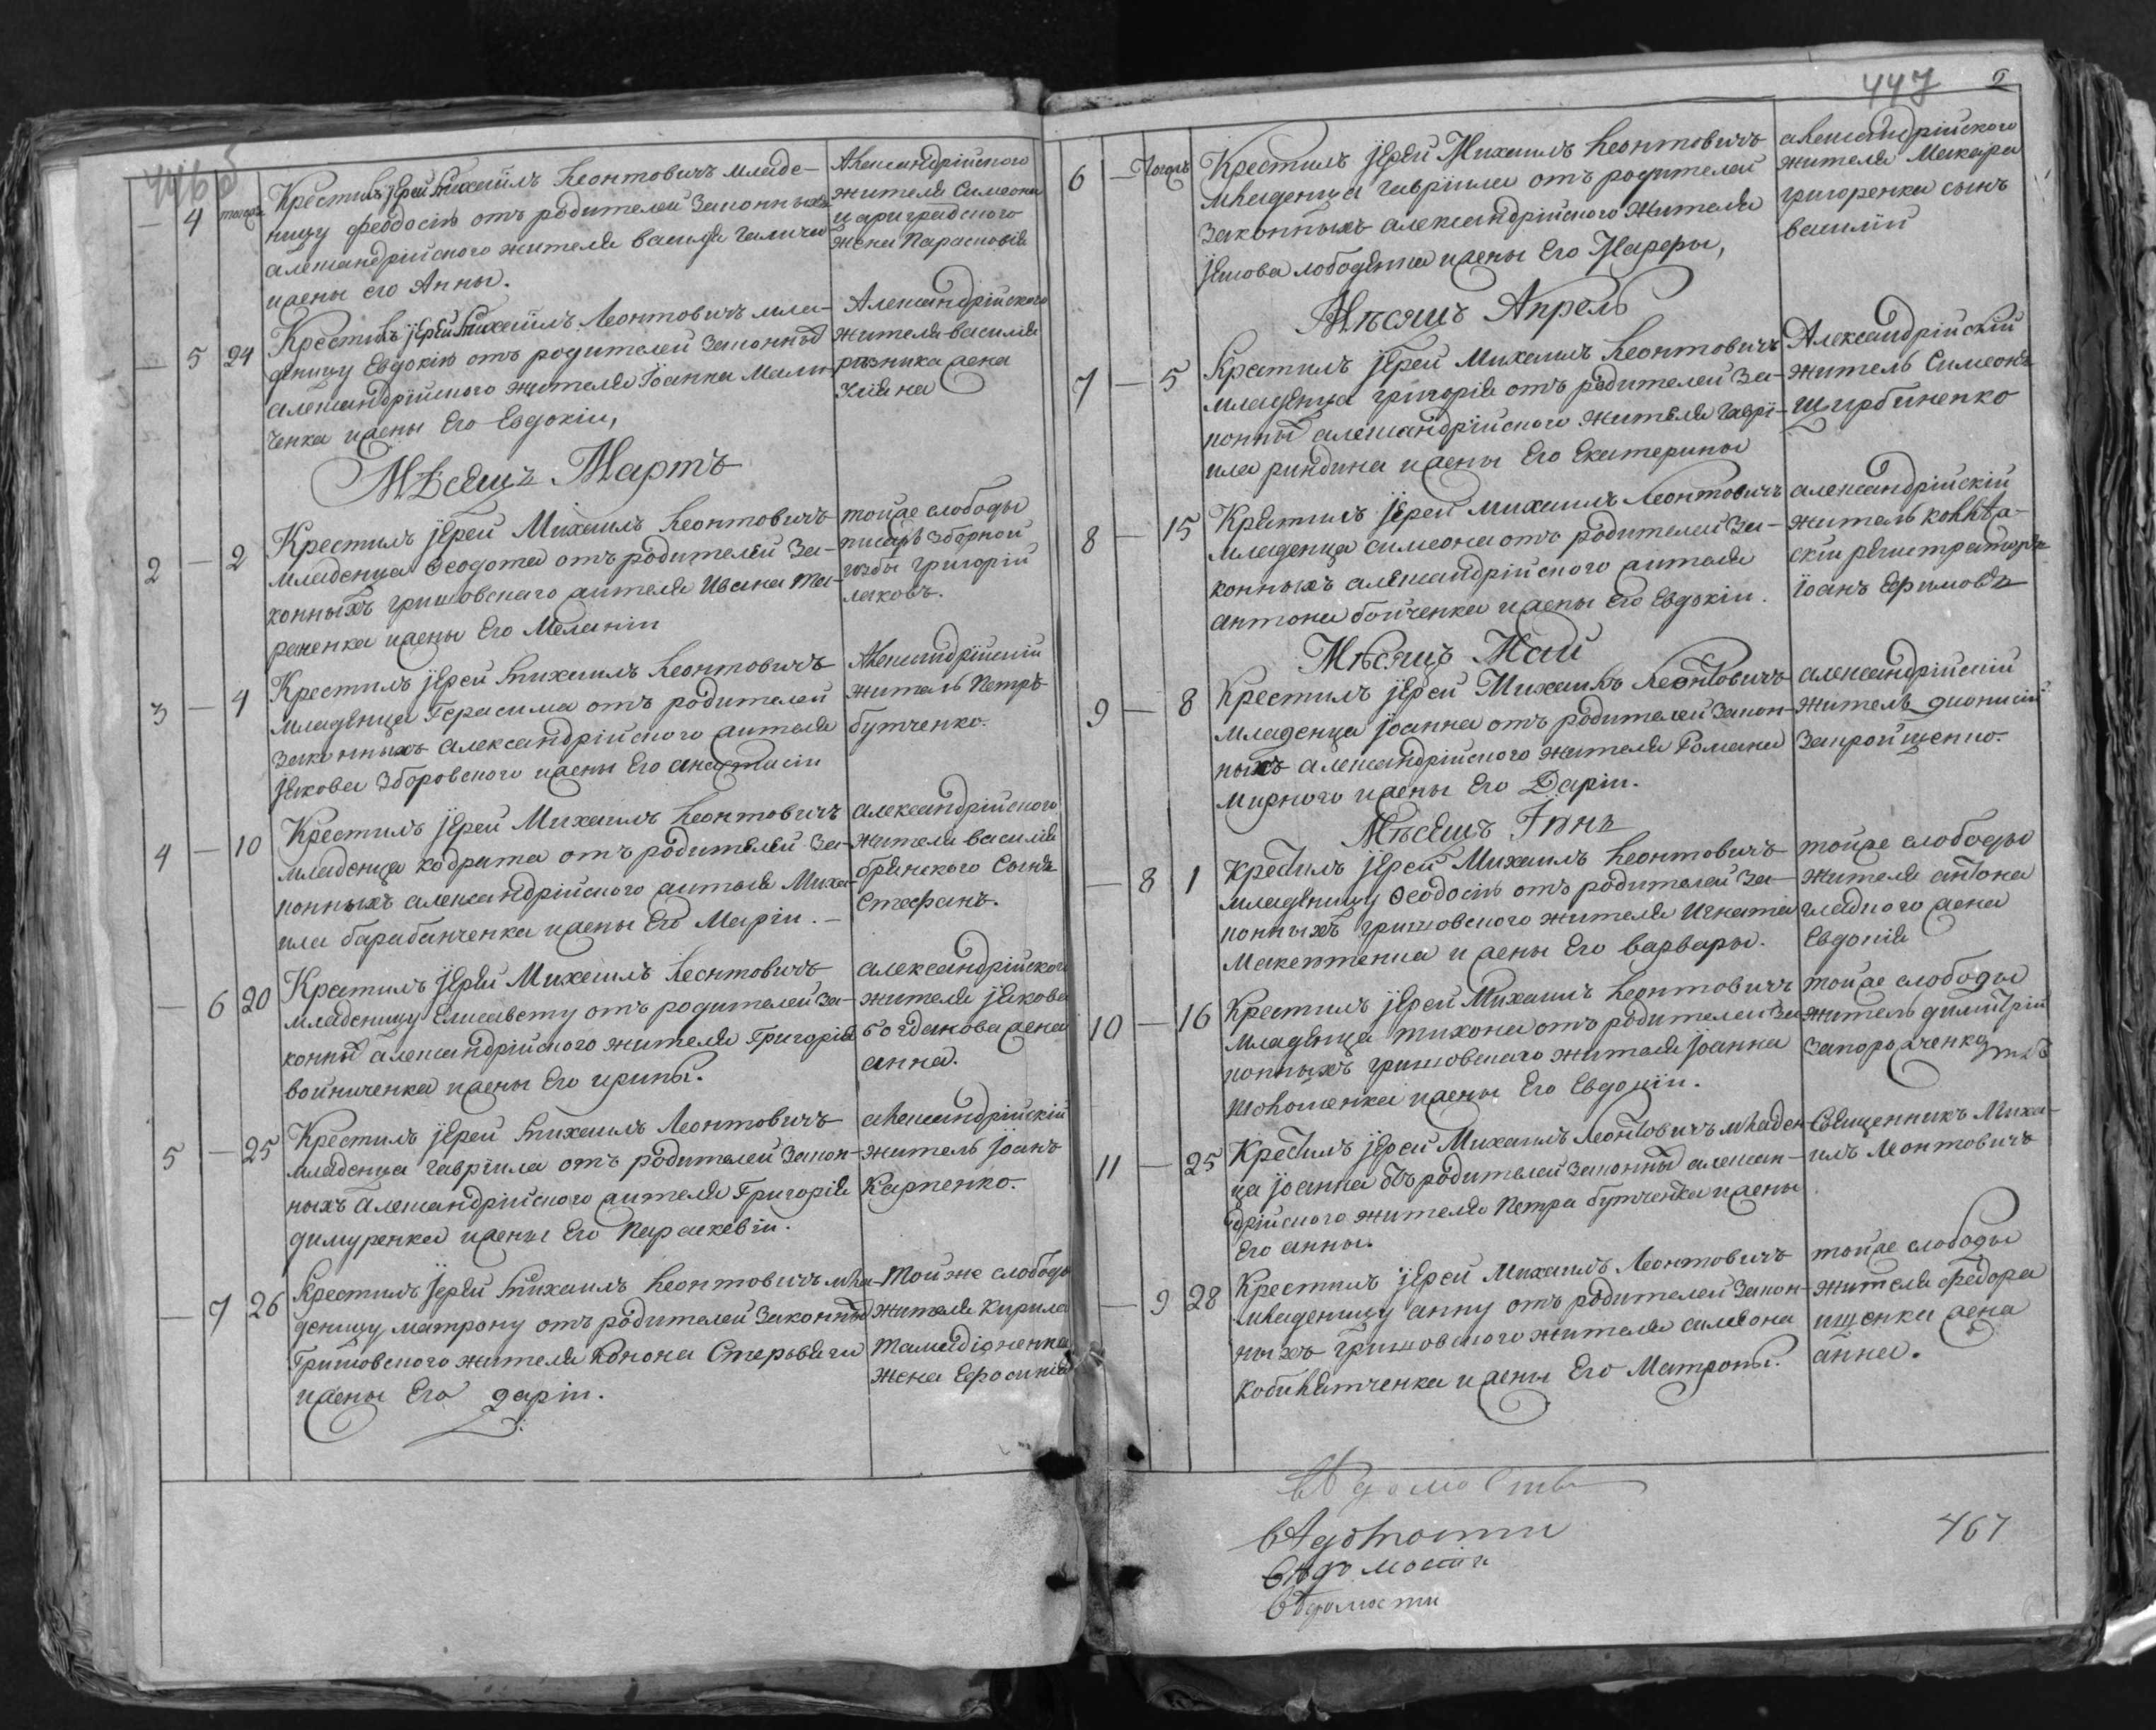 446б
— 4 тогожъ
Крестилъ јерей Михаилъ Леонтовичъ младе-
ницу феодосію отъ родителей Законныхъ
александрійского жителя василія Галича
ижены его Анны.
Александрійского
жителя Симеона
цариградского
жена Парасковія
— 5 24
Крестилъ јерей Михаилъ Леонтовичъ мла-
деницу Евдокію отъ родителей Законны
александрійского жителя Іоанна Мали-
ченка ижены Его Евдокіи,
Александрійского
жителя василія
резника жена
Уліяна
Мѣсяцъ Мартъ
2 — 2
Крестилъ јерей Михаилъ Леонтовичъ
младенца Феодота отъ родителей За-
конныхъ гришовскаго жителя Ивана Та-
раненка ижены Его Меланіи
тойже слободы
писарь зборной
избы григорій
лаковъ.
3 — 4
Крестилъ јерей Михаилъ Леонтовичъ
младенца Герасима отъ родителей
Законныхъ александрійского жителя
јякова Зборовского ижены Его анастасіи
Александрійскій
житель Петръ
бутченко.
4 — 10
Крестилъ јерей Михаилъ Леонтовичъ
младенца кодрата отъ родителей За-
конныхъ александрійского жителя Миха-
ила барабанченка ижены Его Маріи. —
александрійского
жителя василія
бранского Сынъ
Стефанъ.
— 6 20
Крестилъ јерей Михаилъ Леонтовичъ
младеницу Елисавету отъ родителей за-
конны александрійского жителя Григорія
войниченка ижены Его ирины.
александрійского
жителя јякова
богданова жена
анна.
5 — 25
Крестилъ јерей Михаилъ Леонтовичъ
младенца гавріила отъ родителей Закон-
ныхъ александрійского жителя Григорія
димуренка ижены Его Параскевіи.
александрійскій
житель јоанъ
Карпенко.
— 7 26
Крестилъ јерей Михаилъ Леонтовичъ мла-
деницу матрону отъ родителей Законны
Гришовского жителя Конона Стервяги
ижены Его даріи.
Тойже слободы
жителя Кирила
жена Ефросинія
447
6 — Тогожъ
Крестилъ јерей Михаилъ Леонтовичъ
младенца гавріила отъ родителей
Законныхъ александрійского жителя
јякова лободенка ижены Его Марфы,
александрійского
жителя Макара
григоренка сынъ
василій
Мѣсяцъ Апрель
7 — 5
Крестилъ јерей Михаилъ Леонтовичъ
младенца григорія отъ родителей За-
конны александрійского жителя гаврі-
ила риндина ижены Его Екатерины
Александрійскій
житель Симеонъ
щирбиненко
8 — 15
Крестилъ јерей Михаилъ Леонтовичъ
младенца симеона отъ родителей За-
конныхъ александрійского жителя
антона бойченка ижены Его Евдокіи.
александрійскій
житель коллѣа-
скій регистраторъ
іоанъ Ефимовъ
Мѣсяцъ Май
9 — 8
Крестилъ јерей Михаилъ Леонтовичъ
младенца јоанна отъ родителей Закон-
ныхъ александрійского жителя Романа
мирного ижены Его Даріи.
александрійскій
житель діонисій
Запройщенко.
Мѣсяцъ Іюнь
— 8 1
Крестилъ јерей Михаилъ Леонтовичъ
младеницу Феодосію отъ родителей За-
конныхъ гришовского жителя Игната
и жены Его варвары.
тойже слободы
жителя антона
гладкого жена
Евдокія
10 — 16
Крестилъ јерей Михаилъ Леонтовичъ
младенца тихона отъ родителей За-
конныхъ гришовскаго жителя јоанна
ижены Его Евдокіи.
тойже слободы
житель димитрій
запорожченко
11 — 25
Крестилъ јерей Михаилъ Леонтовичъ младен-
ца јоанна отъ родителей Законны алексан-
дрійского жителя Петра бутченка ижены
Его анны.
Священникъ Миха-
илъ Леонтовичъ
— 9 28
Крестилъ јерей Михаилъ Леонтовичъ
младеницу анну отъ родителей Закон-
ныхъ гришовского жителя симеона
кобилятченка ижены Его Матроны.
тойже слободы
жителя федора
ищенка жена
анна.
вѣдомости
вѣдомости
вѣдомости
467